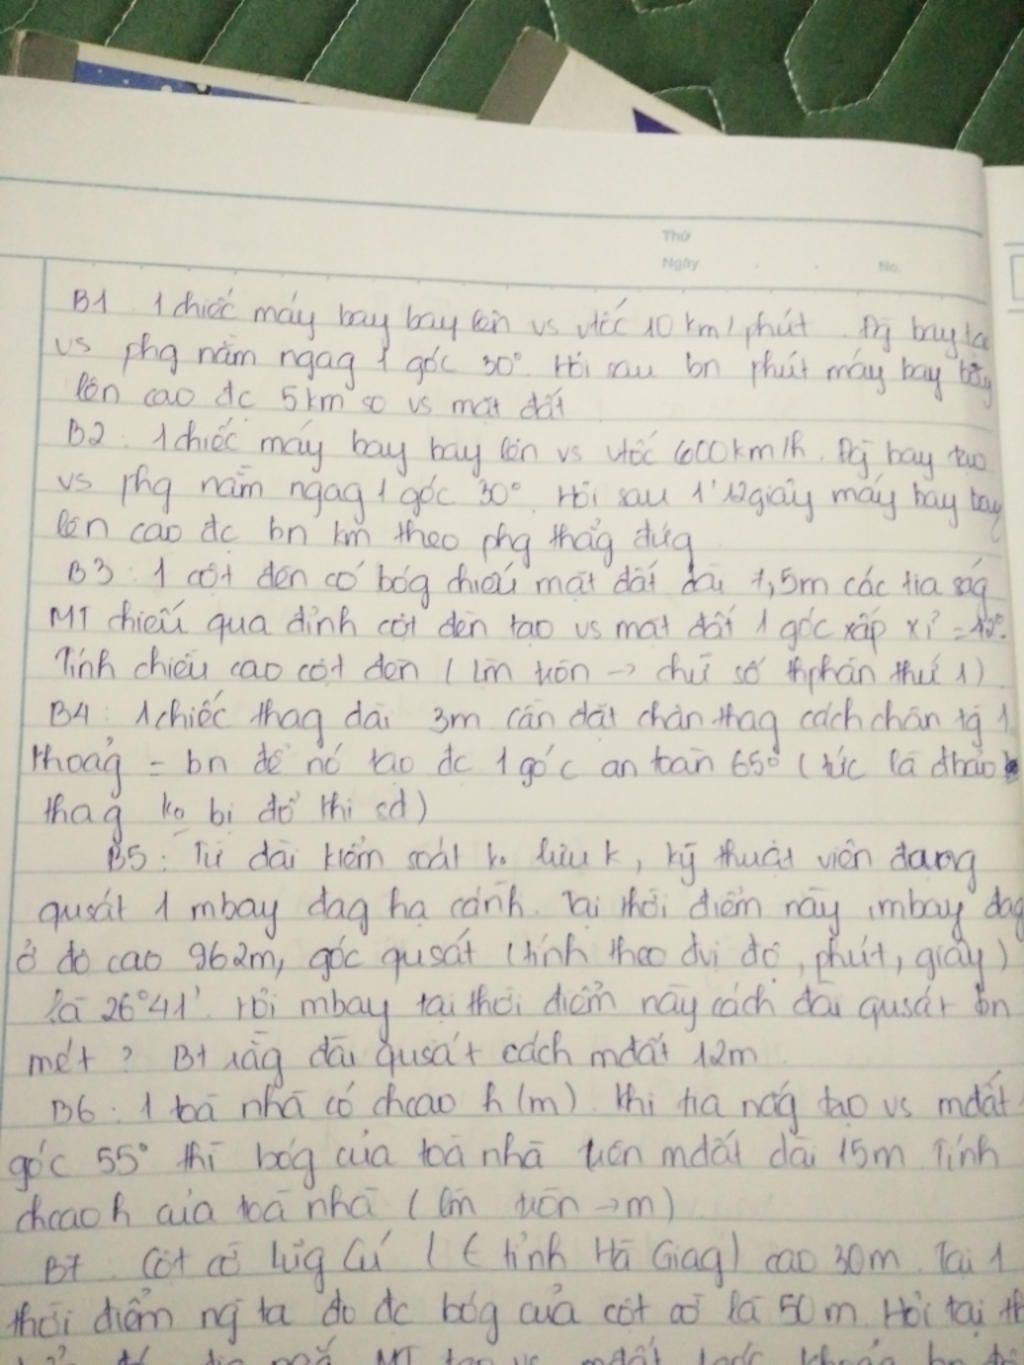 Thứ
Ngày No.
B1 1 chiếc máy bay bay lên vs vtốc 10 km/phút. Đg bay tạo
vs phg nằm ngag 1 góc 30°. Hỏi sau bn phút máy bay bay
lên cao đc 5km so vs mặt đất
B2: 1 chiếc máy bay bay lên vs vtốc 600km/h. Đg bay tạo
vs phg nằm ngag 1 góc 30°. Hỏi sau 1' 12giây máy bay bay
lên cao đc bn km theo phg thẳg đứg
B3: 1 cột đèn có bóg chiếu mặt đất dài 7,5m các tia ság
MT chiếu qua đỉnh cột đèn tạo vs mặt đất 1 góc xấp xỉ = 42°.
Tính chiều cao cột đèn (làm tròn → chữ số thphân thứ 1)
B4: 1 chiếc thag dài 3m cần đặt chân thag cách chân tg 1
khoảg = bn để nó tạo đc 1 góc an toàn 65° (tức là đảo
thag ko bị đổ khi sd)
B5: Từ đài kiểm soát k. lưu k, kỹ thuật viên đang
qusát 1 mbay đag hạ cánh. Tại thời điểm này mbay đag
ở độ cao 962m, góc qusát (tính theo đvị độ, phút, giây)
là 26°41'. Hỏi mbay tại thời điểm này cách đài qusát bn
mét? Bt rằg đài qusát cách mđất 12m
B6: 1 toà nhà có chcao h (m). Khi tia nắg tạo vs mđất
góc 55° thì bóg của toà nhà trên mđất dài 15m. Tính
chcao h của toà nhà (làm tròn → m)
B7 Cột cờ Lũg Cú ( tỉnh Hà Giag) cao 30m. Tại 1
thời điểm ng ta đo đc bóg của cột cờ là 50m. Hỏi tại
MT tạo vs mđất